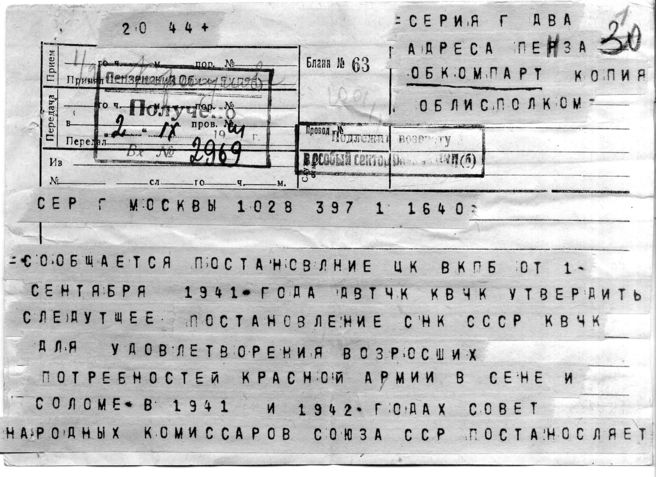 20 44+
=СЕРИЯ Г ДВА
АДРЕСА ПЕНЗА
ОБКОМПАРТ КОПИЯ
ОБЛИСПОЛКОМ=
30
Прием
го ч. м. пор. №
Принял
Передача
го ч. пор. №
в пров. №
Передал
Из
№ сл. го ч. м.
Бланк № 63
Получено
2 - IX 1941 г.
Вх № 2969
Провод №
Подлежит возврату
в особый сектор
СЕР Г МОСКВЫ 1028 397 1 1640=
=СООБЩАЕТСЯ ПОСТАНОВЛНИЕ ЦК ВКПБ ОТ 1-
СЕНТЯБРЯ 1941-ГОДА ДВТЧК КВЧК УТВЕРДИТЬ
СЛЕДУТЩЕЕ ПОСТАНОВЛЕНИЕ СНК СССР КВЧК
ДЛЯ УДОВЛЕТВОРЕНИЯ ВОЗРОСШИХ
ПОТРЕБНОСТЕЙ КРАСНОЙ АРМИИ В СЕНЕ И
СОЛОМЕ-В 1941 И 1942-ГОДАХ СОВЕТ
НАРОДНЫХ КОМИССАРОВ СОЮЗА ССР ПОСТАНОСЛЯЕТ